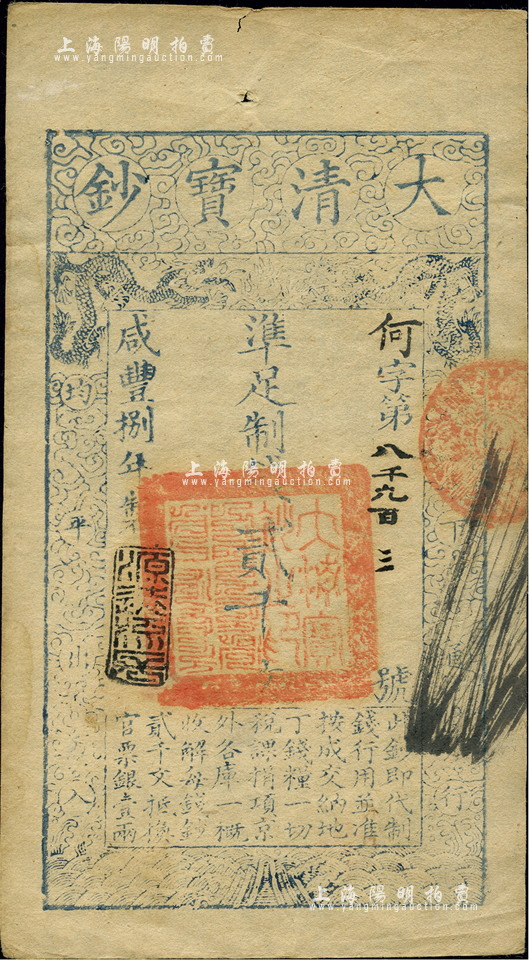 上海陽明拍賣
www.yangmingauction.com
大清寶鈔
何字第八千六百三號
準足制錢貳千文
咸豐捌年製
均平出入
下通行
此鈔即代制
錢行用並准
按成交納地
丁錢糧一切
稅課捐項京
外各庫一概
收解每錢鈔
貳千文抵換
官票銀壹兩
上海陽明拍賣
www.yangmingauction.com
上海陽明拍賣
www.yangmingauction.com